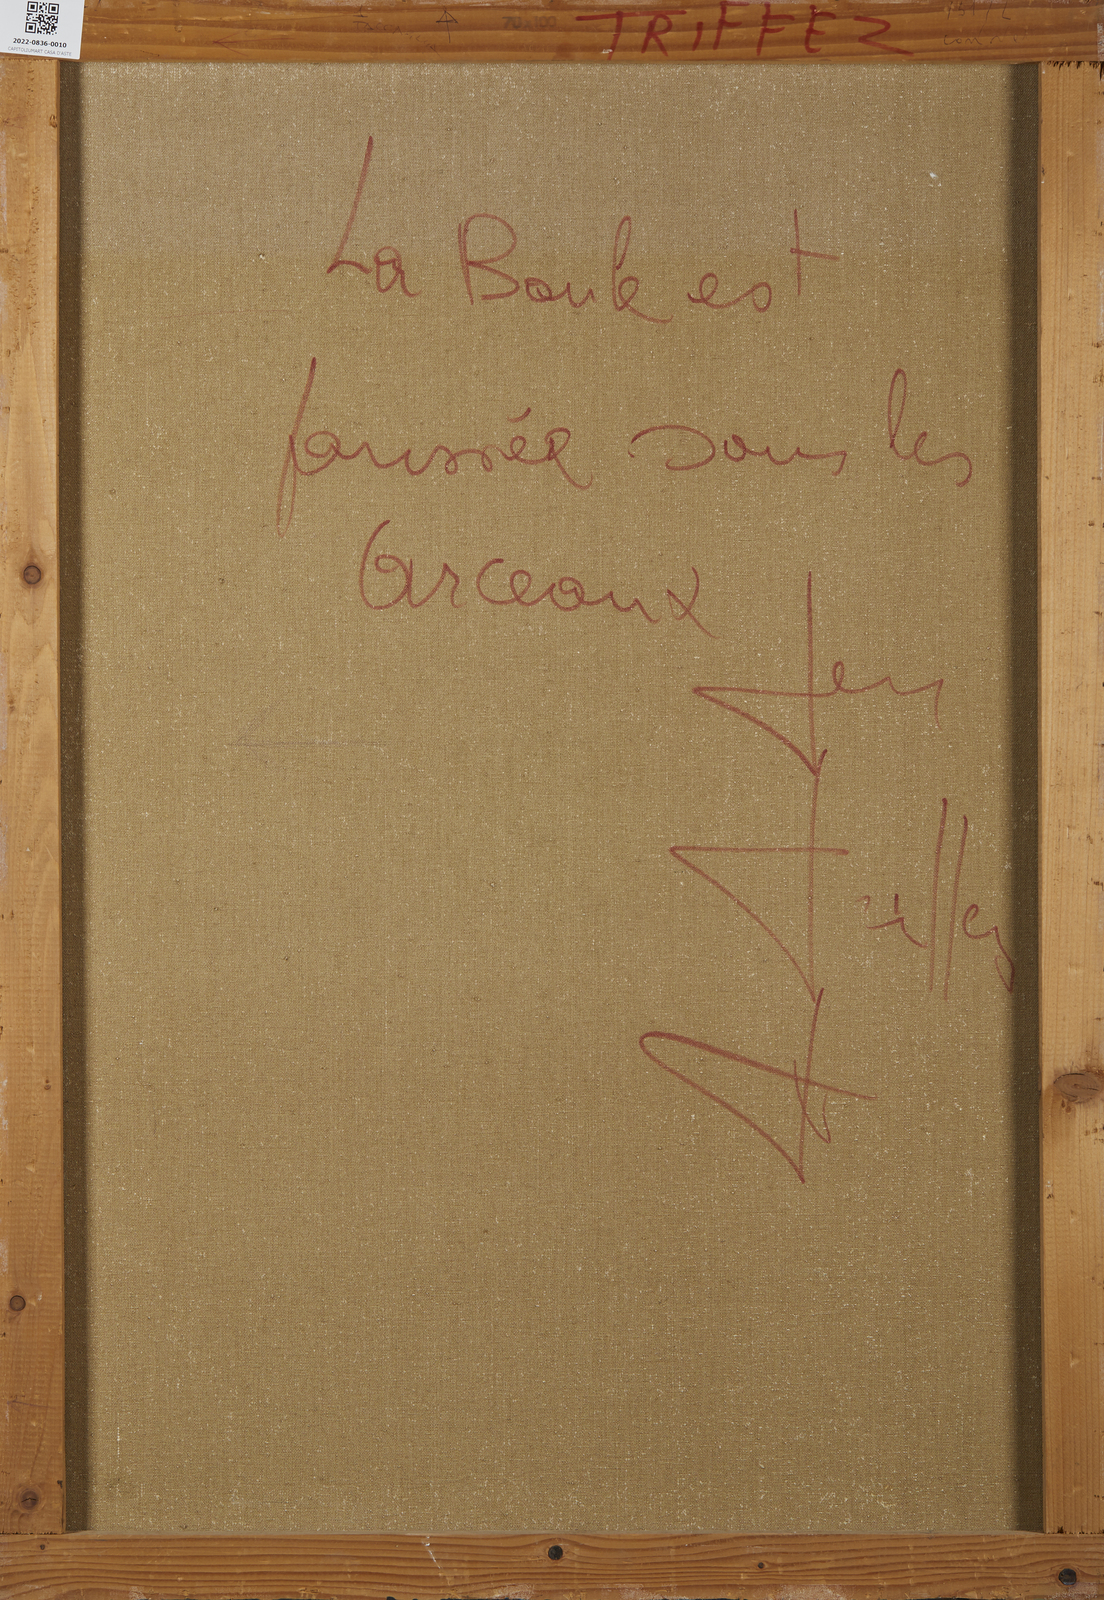 2022-0836-0010
CAPITOLIUMART CASA D'ASTE
70x100
TRIFFEZ
La Boule est
poussée sous les
arceaux